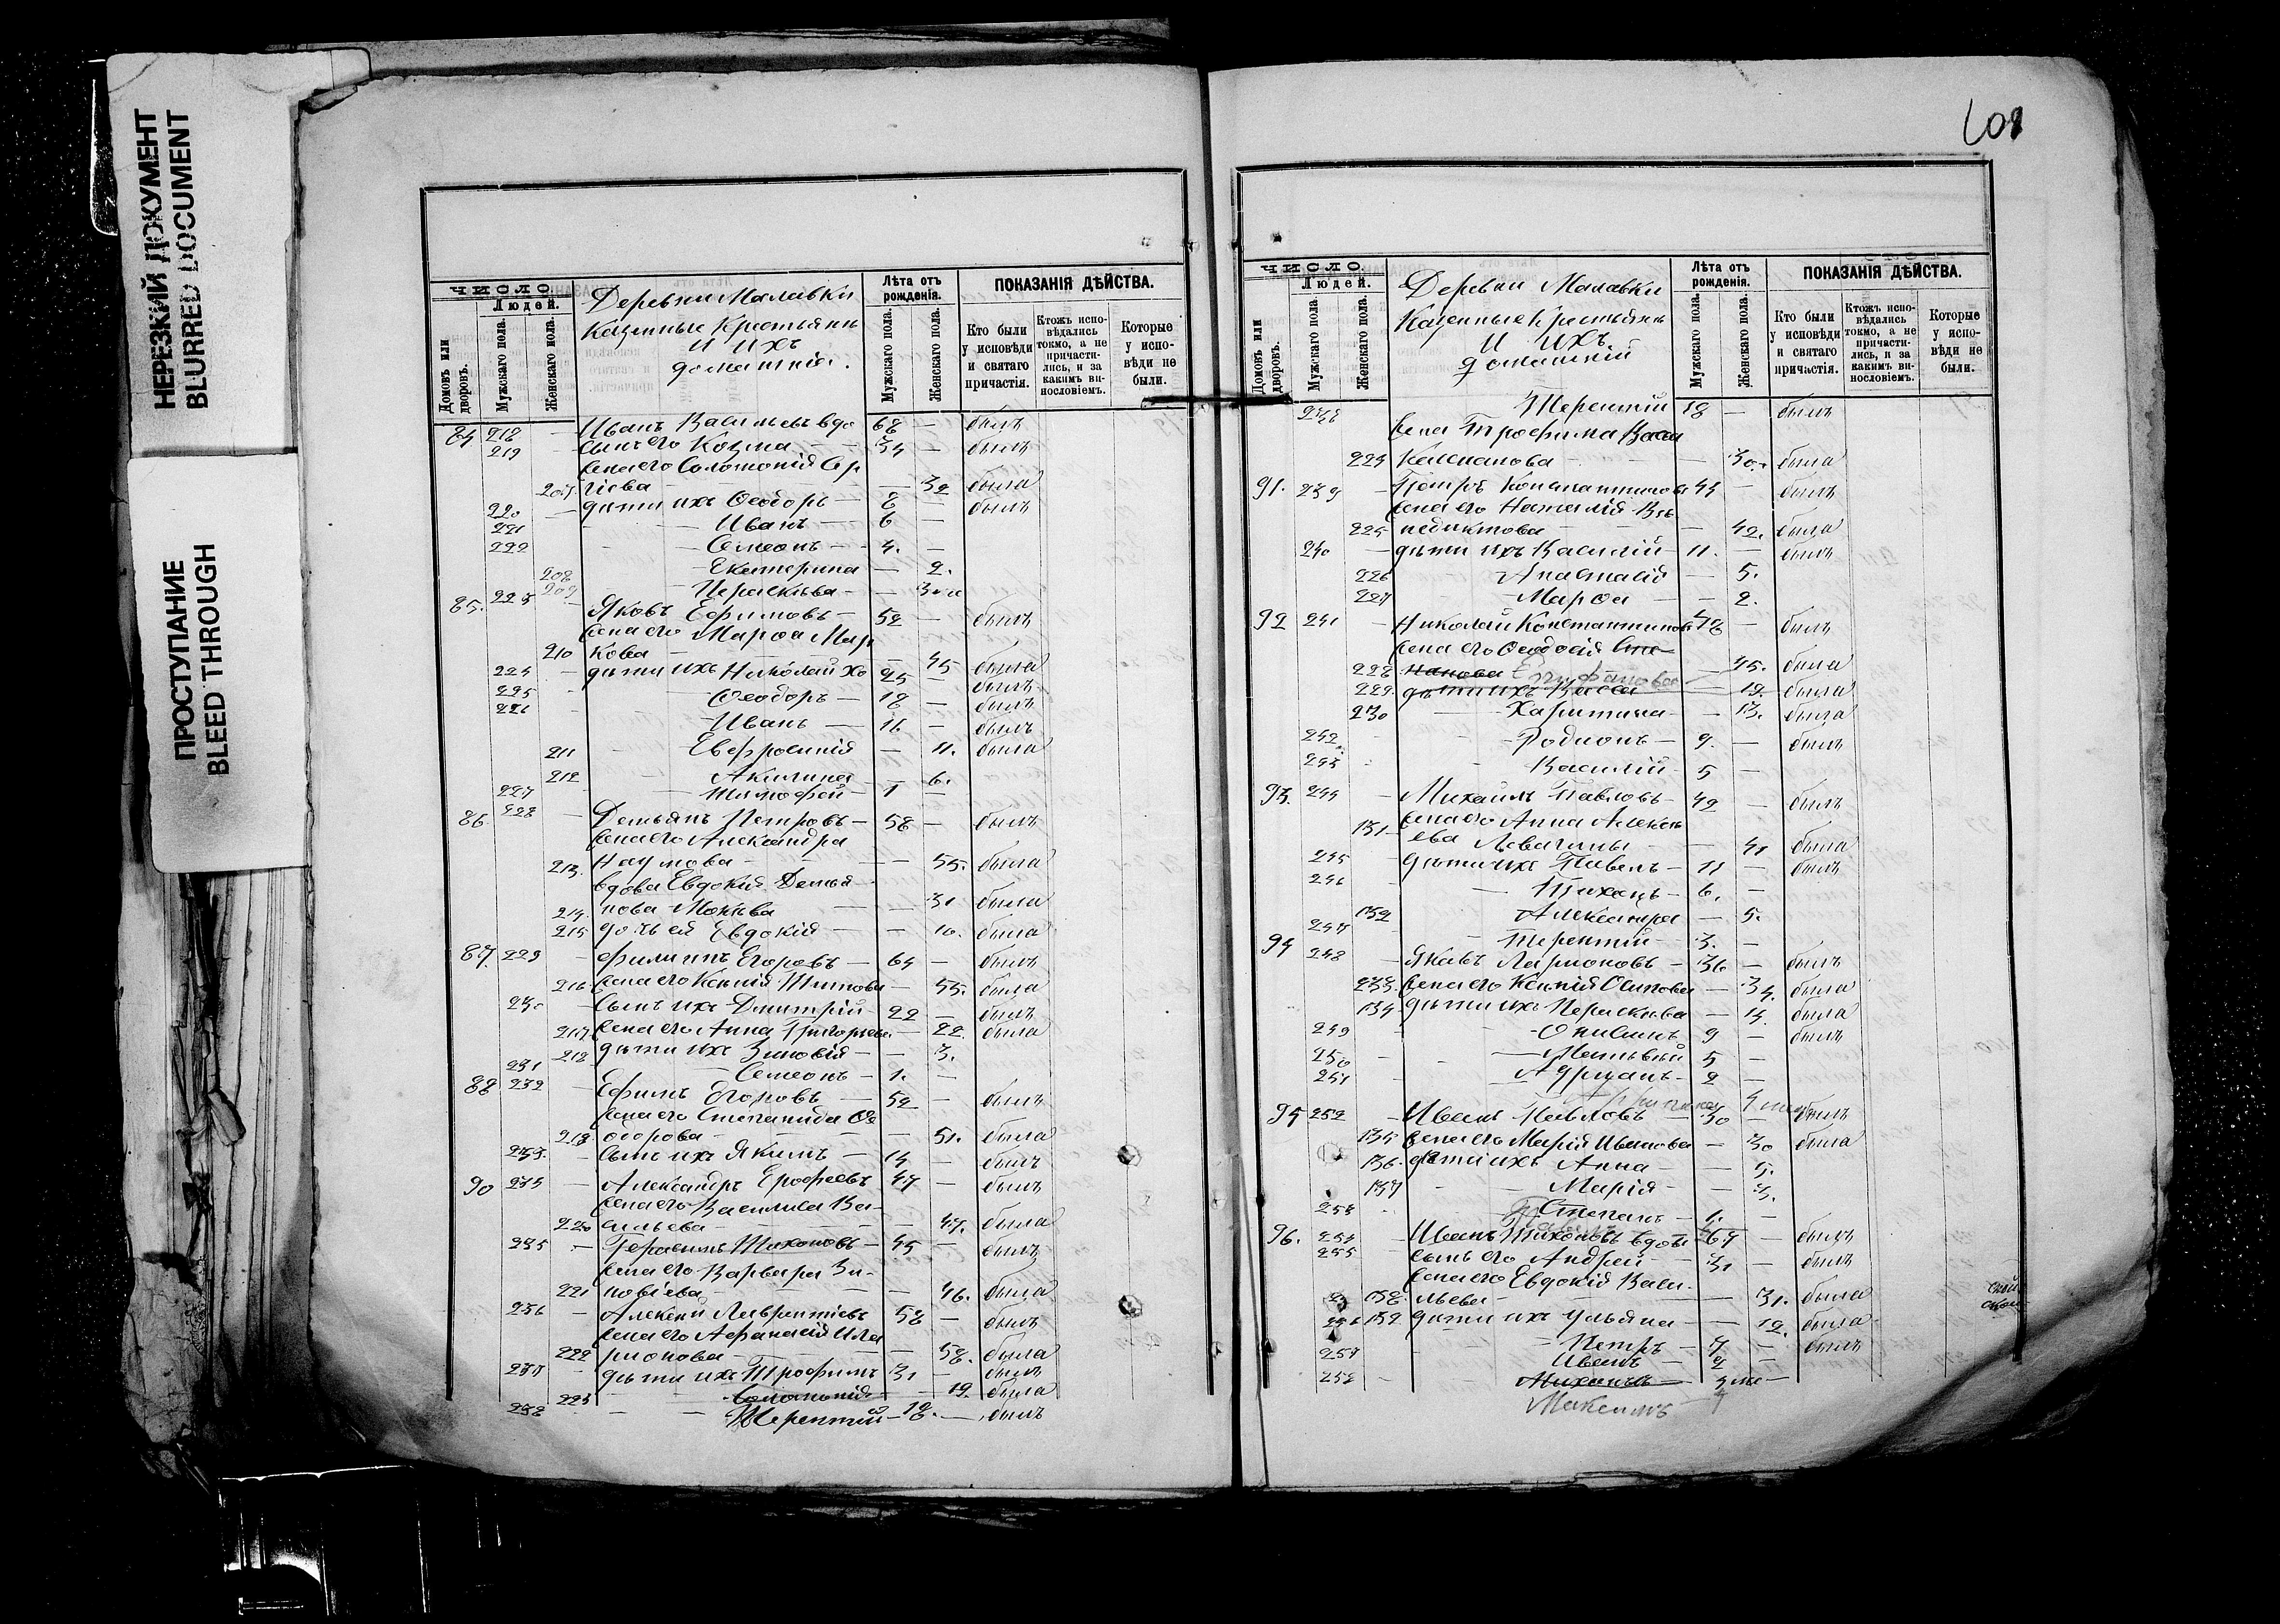 НЕРЕЗКИЙ ДОКУМЕНТ
BLURRED DOCUMENT
ПРОСТУПАНИЕ
BLEED THROUGH
ЧИСЛО.
Людей.
Домовъ или дворовъ.
Мужскаго пола.
Женскаго пола.
Деревни Малавки
Казенные Крестьяне
и ихъ
домашніе.
Лѣта отъ рожденія.
Мужскаго пола.
Женскаго пола.
ПОКАЗАНІЯ ДѢЙСТВА.
Кто были у исповѣди и святаго причастія.
Ктожъ исповѣдались токмо, а не причастились, и за какимъ винословіемъ.
Которые у исповѣди не были.
84 218 — Иванъ Васильевъ вдо 68 — былъ
219 — сынъ его Козма — 34 — былъ
жена его Соломонія Сер
207 гіева — — 32 была
220 — дѣти ихъ Ѳеодоръ — 8 — былъ
221 — Иванъ — 6 —
222 — Симеонъ — 4. —
208 Екатерина — 2.
209 Параскева —
85. 223 — Яковъ Ефимовъ — 52 — былъ
жена его Марѳа Мар
210 кова — — 45 была
224 — дѣти ихъ Николай хо 25 — былъ
225 — Ѳеодоръ — 18 — былъ
226 — Иванъ — 16 — былъ
211 Евфросинія — 11. была
212 Акилина — 6.
227 Тимофей — 1 —
86. 228 — Демьянъ Петровъ — 58 — былъ
жена его Александра
213. Наумова — — 55. была
вдова Евдокія Демья
214. нова Мокѣва — 31 была
215 дочь ея Евдокія — — 10. была
87. 229 — Филиппъ Егоровъ — 64 — былъ
216 жена его Ксенія Титова — 55. была
230 — сынъ ихъ Димитрій — 22 — былъ
217 жена его Анна Григорьева — 22. была
218 дѣти ихъ Зиновія — — 3.
231 Семеонъ — 1. —
88 232 — Ефимъ Егоровъ — 52 — былъ
жена его Степанида Ѳе
219 одорова — — 51. была
233. — сынъ ихъ Якимъ — 14 — былъ
90 234 — Александръ Ерофеевъ 47 — былъ
жена его Василиса Ва-
220 сильева — — 47. была
235 — Герасимъ Тихоновъ — 45 — былъ
жена его Варвара Зи-
221 новіева — — 46. была
236 — Алексей Лаврентіевъ 58 — былъ
жена его Афанасія Ила
222 ріонова — — 58. была
237 — дѣти ихъ Трофимъ 31 — былъ
223 Соломонія — 19. была
238 — Терентій — 18. — былъ
601
ЧИСЛО.
Людей.
Домовъ или дворовъ.
Мужскаго пола.
Женскаго пола.
Деревни Малавки
Казенные Крестьяне
и ихъ
домашній
Лѣта отъ рожденія.
Мужскаго пола.
Женскаго пола.
ПОКАЗАНІЯ ДѢЙСТВА.
Кто были у исповѣди и святаго причастія.
Ктожъ исповѣдались токмо, а не причастились, и за какимъ винословіемъ.
Которые у исповѣди не были.
238 Терентій 18 — былъ
жена Трофима Васса
224 — 30. была
91. 239 — Петръ Константиновъ 44 — былъ
жена его Наталія Ве
225 недиктова — — 42. была
240 — дѣти ихъ Василій — 11. — былъ
226 Анастасія — 5.
227 Марѳа — 2.
92 241 — Николай Константиновъ 48 — былъ
жена его Ѳеодосія Сте
228 панова Епифанова — 45. была
229. дѣти ихъ Васса — 19. — была
230 Харитина — 13. была
242. Родіонъ — 9. — былъ
243 Василій — 5 —
93. 244 — Михаилъ Павловъ — 42 — былъ
жена его Анна Алексѣ
131 ева — 41 была
245 — дѣти ихъ Павелъ — 11 — былъ
246 — Тихонъ — 6. —
132 Александра — 5.
247 Терентій — 3. —
94 248 — Яковъ Ларіоновъ — 36 — былъ
233. жена его Ксенія Осипова — 34. была
134 дѣти ихъ Параскева — 14. была
249 — Онисимъ 9 — былъ
250 — Матьвѣй 5 —
251 — Адріанъ — 2 —
95 252 — Иванъ Павловъ — 30 — былъ
135 жена его Марія Иванова — 30 была
136. дѣти ихъ Анна — — 5.
137 Марія — — 3.
253 Степанъ — 1. —
Павелъ
96. 254 — Иванъ Тихоновъ вдовъ — 67 — былъ
255 — сынъ его Андрей — 31 — былъ
жена его Евдокія Васи-
138 льева — — 31. была
139 дѣти ихъ Ульяна — — 12. была
256 — Петръ — 7 — былъ
257 Иванъ — 2 —
258 — Михаилъ —
Максимъ